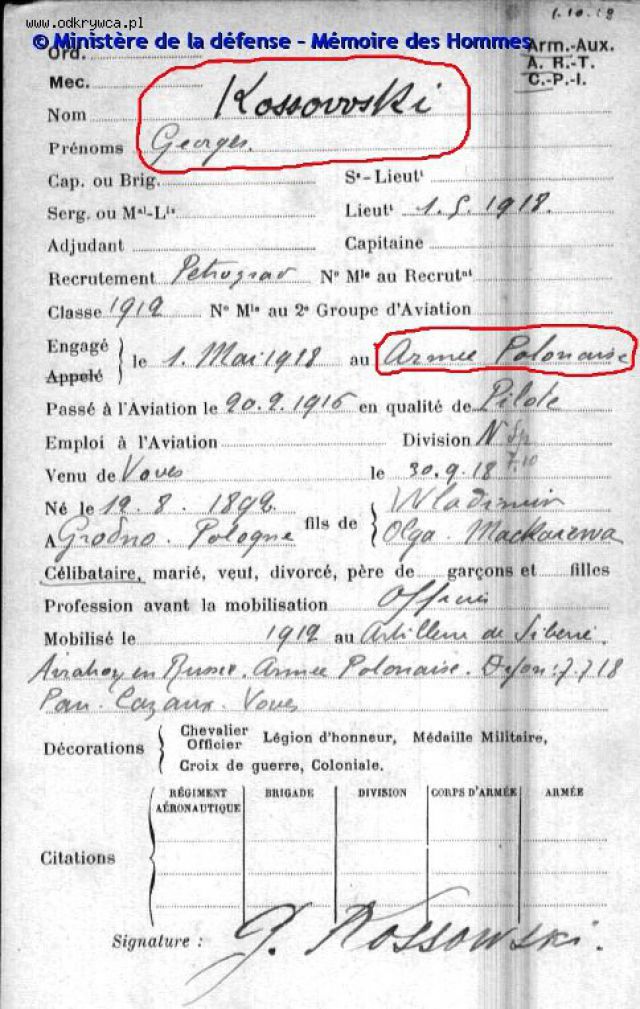 www.odkrywca.pl
1.10.18
© Ministère de la défense - Mémoire des Hommes
Ord. Arm.-Aux.
A. R.-T.
Mec. C.-P.-I.
Nom Kossovski
Prénoms Georges.
Cap. ou Brig. Sˢ-Lieutᵗ
Serg. ou Mᵃˡ-Lⁱˢ Lieutᵗ 1.5.1918.
Adjudant Capitaine
Recrutement Petrograd Nº Mˡᵉ au Recrutᵉᵗ
Classe 1912 Nº Mˡᵉ au 2ᵉ Groupe d'Aviation
Engagé
Appelé } le 1. Mai 1918 au Armée Polonaise
Passé à l'Aviation le 20.2.1916 en qualité de Pilote
Emploi à l'Aviation Division N Sp
Venu de Voves le 30.9.18 7.10
Né le 12.8.1892 fils de { Wladimir
A Grodno. Pologne Olga. Mackarewa
Célibataire, marié, veuf, divorcé, père de garçons et filles
Profession avant la mobilisation Officier
Mobilisé le 1912 au Artillerie de Siberie.
Aviation en Russie. Armée Polonaise. Dijon: 7.7.18
Pau. Cazaux. Voves
Décorations { Chevalier
Officier Légion d'honneur, Médaille Militaire,
Croix de guerre, Coloniale.
RÉGIMENT AÉRONAUTIQUE BRIGADE DIVISION CORPS D'ARMÉE ARMÉE
Citations
Signature : G. Kossowski.